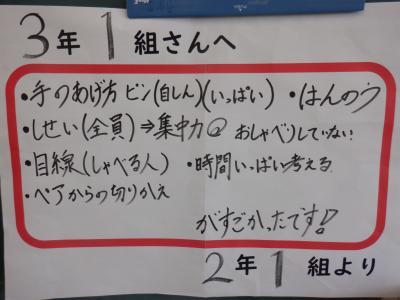 3年 1 組さんへ
・手のあげ方 ピン(自しん)(いっぱい) ・はんのう
・しせい(全員)⇒集中力 おしゃべりしていない
・目線(しゃべる人) ・時間いっぱい考える
・ペアからの切りかえ
がすごかったです!
2年 1 組より